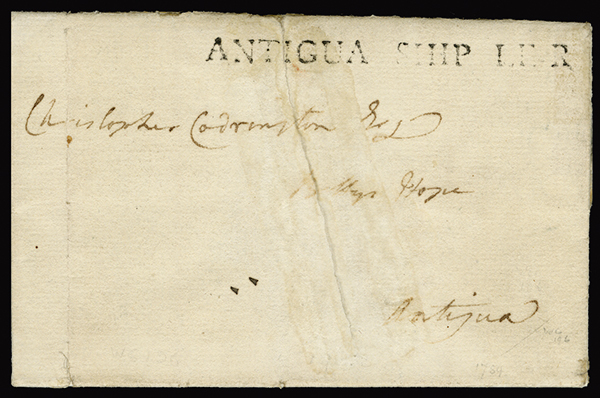 ANTIGUA SHIP LE.R
Christopher Codrington Esq
Bettys Hope
Antigua